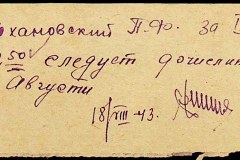 хановский П.Ф. за
50 следует дочислит
Августи
18/VIII-43.